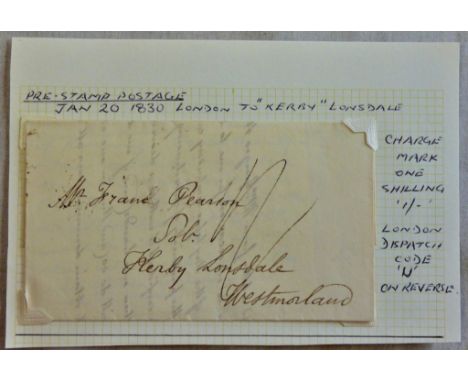 PRE-STAMP POSTAGE
JAN 20 1830 LONDON TO "KERBY" LONSDALE
Mr. Franc Pearson
Solr.
Kerby Lonsdale
Westmorland
1/
CHARGE
MARK
ONE
SHILLING
'1/-'
LONDON
DISPATCH
CODE
'N'
ON REVERSE.